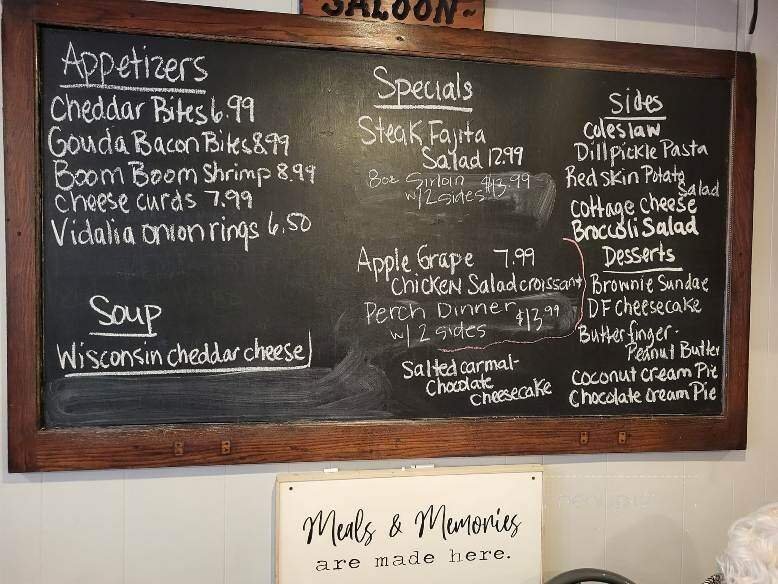 SALOON
Appetizers
Cheddar Bites 6.99
Gouda Bacon Bites 8.99
Boom Boom Shrimp 8.99
cheese curds 7.99
Vidalia onion rings 6.50
Soup
Wisconsin cheddar cheese
Specials
Steak Fajita
Salad 12.99
8oz Sirloin $13.99
w/2 sides
Apple Grape 7.99
Chicken Salad croissant
Perch Dinner $13.99
w/2 sides
Salted carmal-
Chocolate
cheesecake
Sides
Coleslaw
Dill pickle Pasta
Red skin Potato
Salad
Cottage cheese
Broccoli Salad
Desserts
Brownie Sundae
DF Cheesecake
Butterfinger-
Peanut Butter
Coconut Cream Pie
Chocolate Cream Pie
Meals & Memories
are made here.